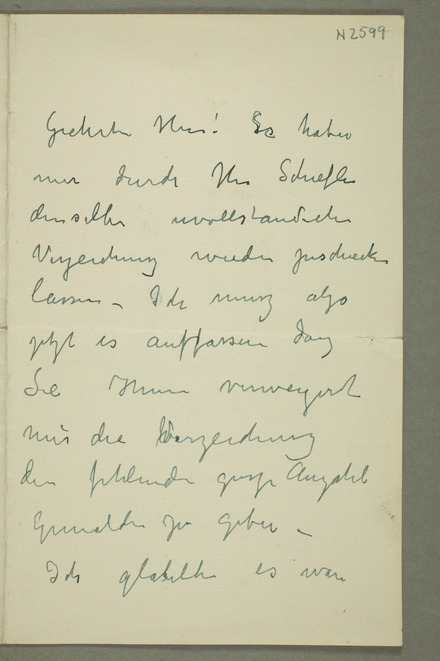 N2599
Geehrter Herr! Es haben
mir durch Hr Schiefler
denselbe uvollständiche
Verzeichnung wieder zuschicken
lassen – Ich musz also
jetzt es auffassen dasz
Sie Ihnen verweigert
mir die Verzeichnung
den fehlenden grosse Anzahl
Gemälden zu geben –
Ich glabelte es war